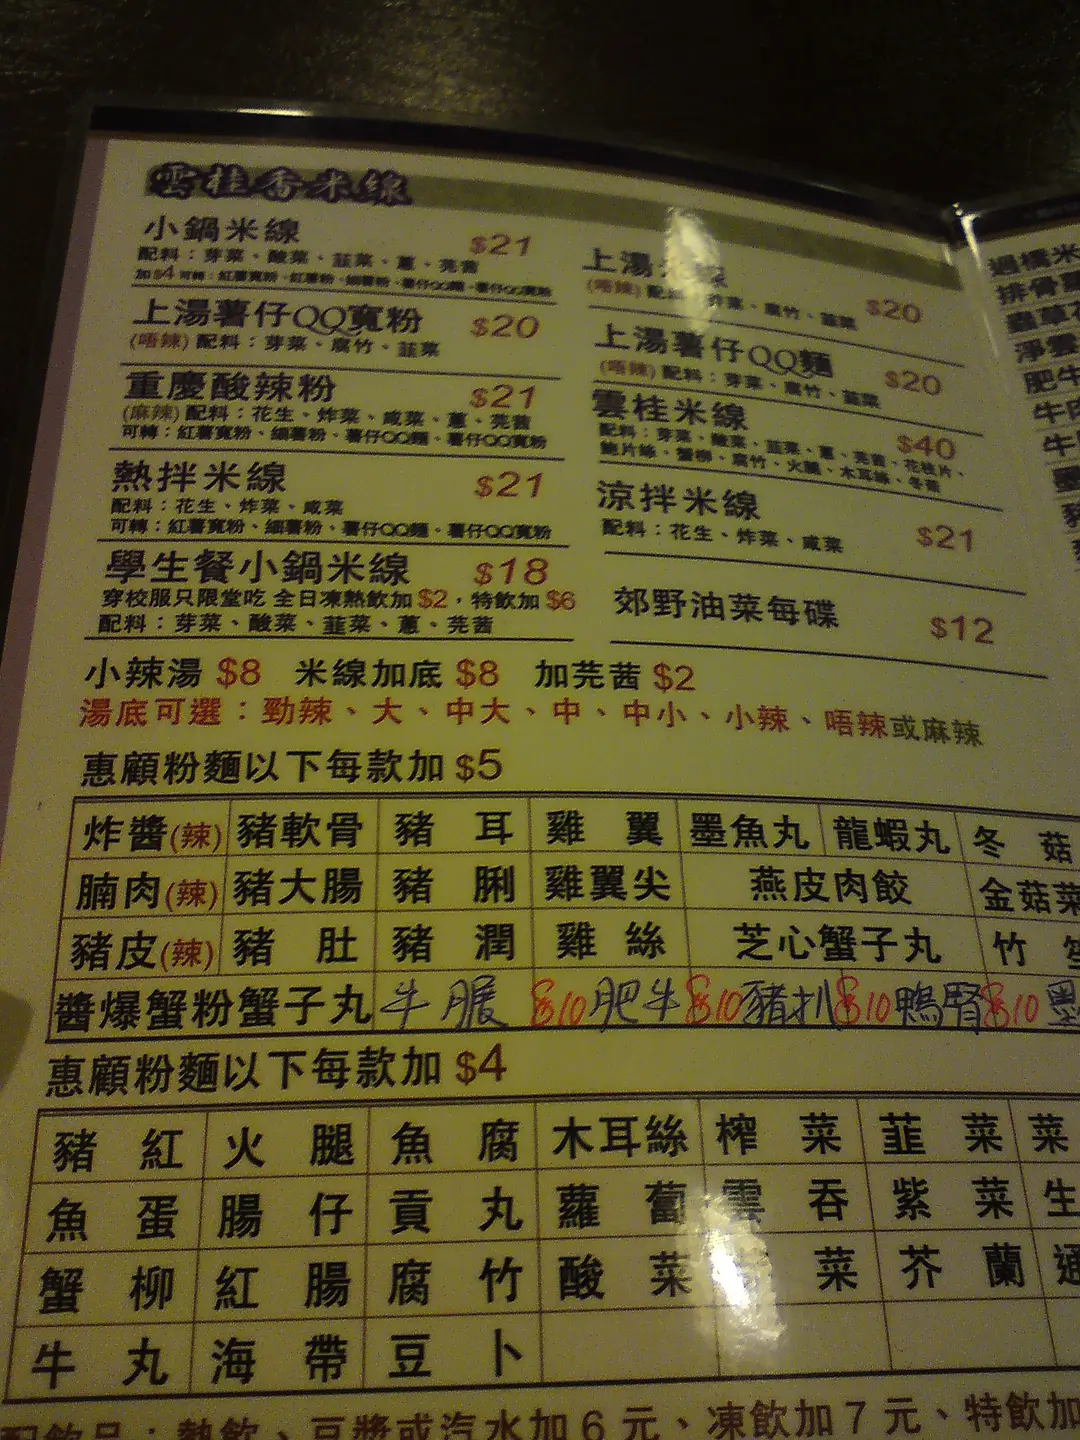 雲桂香米線
小鍋米線 $21
配料：芽菜、酸菜、韮菜、蔥、芫茜
加$4可轉：紅薯寬粉、紅薯粉、細薯粉、薯仔QQ麵、薯仔QQ寬粉
上湯薯仔QQ寬粉 $20
(唔辣) 配料：芽菜、腐竹、韮菜
重慶酸辣粉 $21
(麻辣) 配料：花生、炸菜、咸菜、蔥、芫茜
可轉：紅薯寬粉、細薯粉、薯仔QQ麵、薯仔QQ寬粉
熱拌米線 $21
配料：花生、炸菜、咸菜
可轉：紅薯寬粉、細薯粉、薯仔QQ麵、薯仔QQ寬粉
學生餐小鍋米線 $18
穿校服只限堂吃 全日凍熱飲加$2，特飲加$6
配料：芽菜、酸菜、韮菜、蔥、芫茜
上湯 線 $20
(唔辣) 配 芽菜、腐竹、韮菜
上湯薯仔QQ麵 $20
(唔辣) 配料：芽菜、腐竹、韮菜
雲桂米線 $40
配料：芽菜、酸菜、韮菜、蔥、芫茜、花枝片、
鮑片絲、蟹柳、腐竹、火腿、木耳絲、冬菇
涼拌米線 $21
配料：花生、炸菜、咸菜
郊野油菜每碟 $12
過橋米
排骨
蟲草花
淨雲
肥牛
牛肉
牛
墨
小辣湯 $8 米線加底 $8 加芫茜 $2
湯底可選：勁辣、大、中大、中、中小、小辣、唔辣或麻辣
惠顧粉麵以下每款加 $5
炸醬(辣) 豬軟骨 豬耳 雞翼 墨魚丸 龍蝦丸 冬菇
腩肉(辣) 豬大腸 豬脷 雞翼尖 燕皮肉餃 金菇菜
豬皮(辣) 豬肚 豬潤 雞絲 芝心蟹子丸 竹笙
醬爆蟹粉蟹子丸 牛𦟌 $10 肥牛 $10 豬扒 $10 鴨腎 $10 墨
惠顧粉麵以下每款加 $4
豬紅 火腿 魚腐 木耳絲 榨菜 韮菜 菜
魚蛋 腸仔 貢丸 蘿蔔 雲吞 紫菜 生
蟹柳 紅腸 腐竹 酸菜 菜 芥蘭 通
牛丸 海帶 豆卜
配飲品：熱飲、豆漿或汽水加6元、凍飲加7元、特飲加